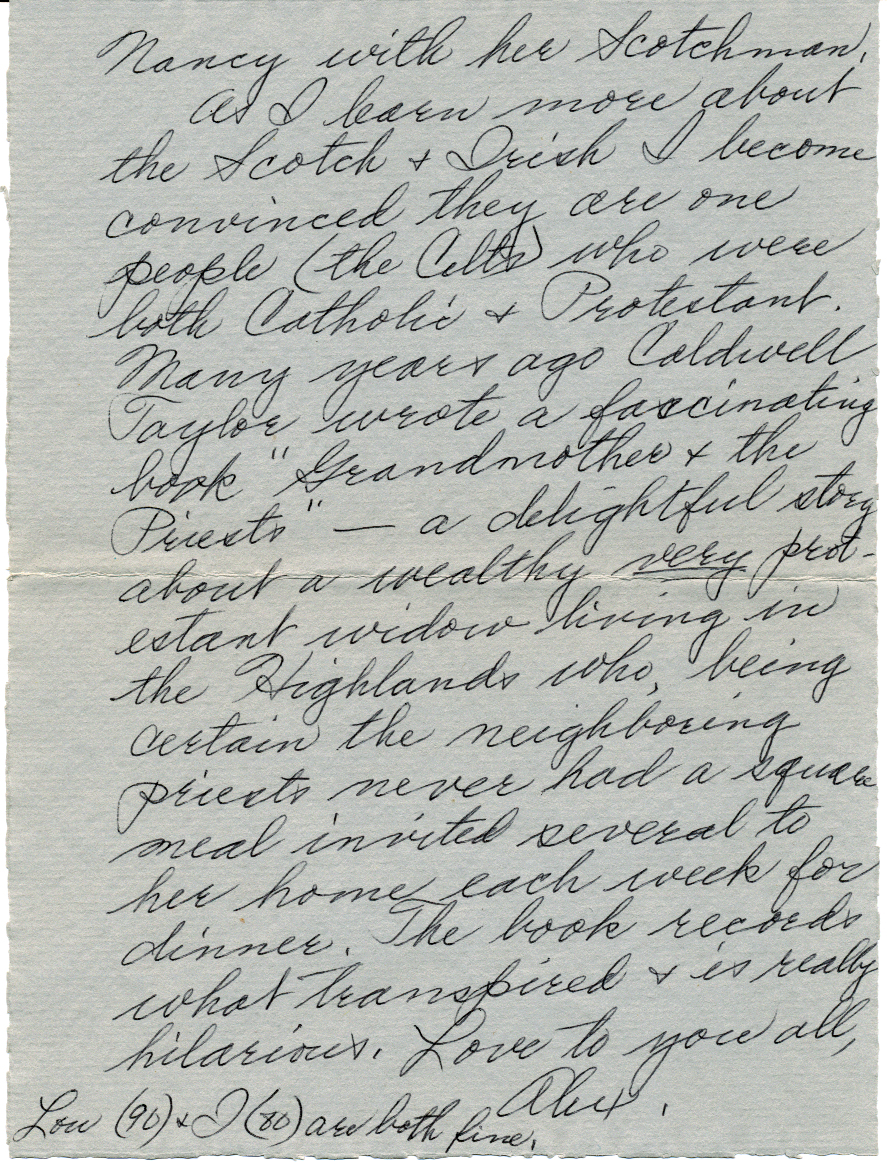 Nancy with her Scotchman.
As I learn more about
the Scotch & Irish I become
convinced they are one
people (the Celts) who were
both Catholic & Protestant.
Many years ago Caldwell
Taylor wrote a fascinating
book "Grandmother & the
Priests" — a delightful story
about a wealthy very prot-
estant widow living in
the Highlands who, being
certain the neighboring
priests never had a square
meal invited several to
her home each week for
dinner. The book records
what transpired & is really
hilarious. Love to you all,
Alex.
Lou (90) & I (80) are both fine.